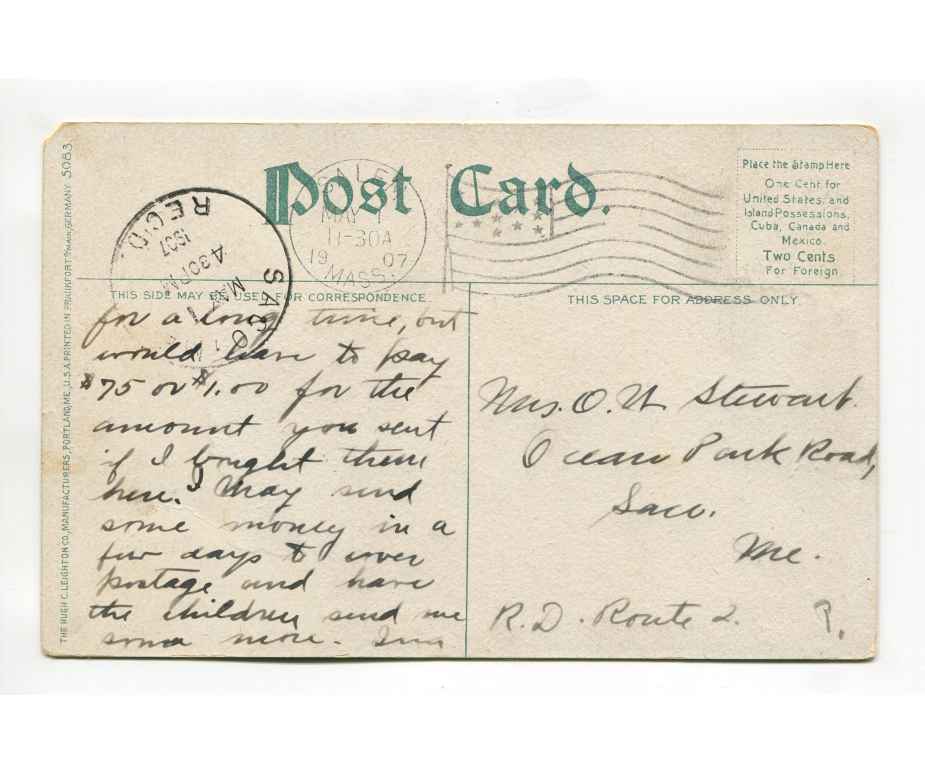 Post Card.
THE HUGH C. LEIGHTON CO., MANUFACTURERS, PORTLAND, ME., U.S.A. PRINTED IN FRANKFORT ᵒ/MAIN, GERMANY. 5083
MAY 1
11-30A
19 07
MASS.
SACO
REC'D
MAY 1
4 30 PM
1907
Place the Stamp Here
One Cent for
United States, and
Island Possessions,
Cuba, Canada and
Mexico.
Two Cents
For Foreign.
THIS SIDE MAY BE USED FOR CORRESPONDENCE
THIS SPACE FOR ADDRESS ONLY.
for a long time, but
would have to pay
$75 or $1.00 for the
amount you sent
if I bought them
here. I may send
some money in a
few days to cover
postage and have
the children send me
some more.
Mrs. O. W. Stewart.
Ocean Park Road,
Saco.
Me.
R.D. Route 2.